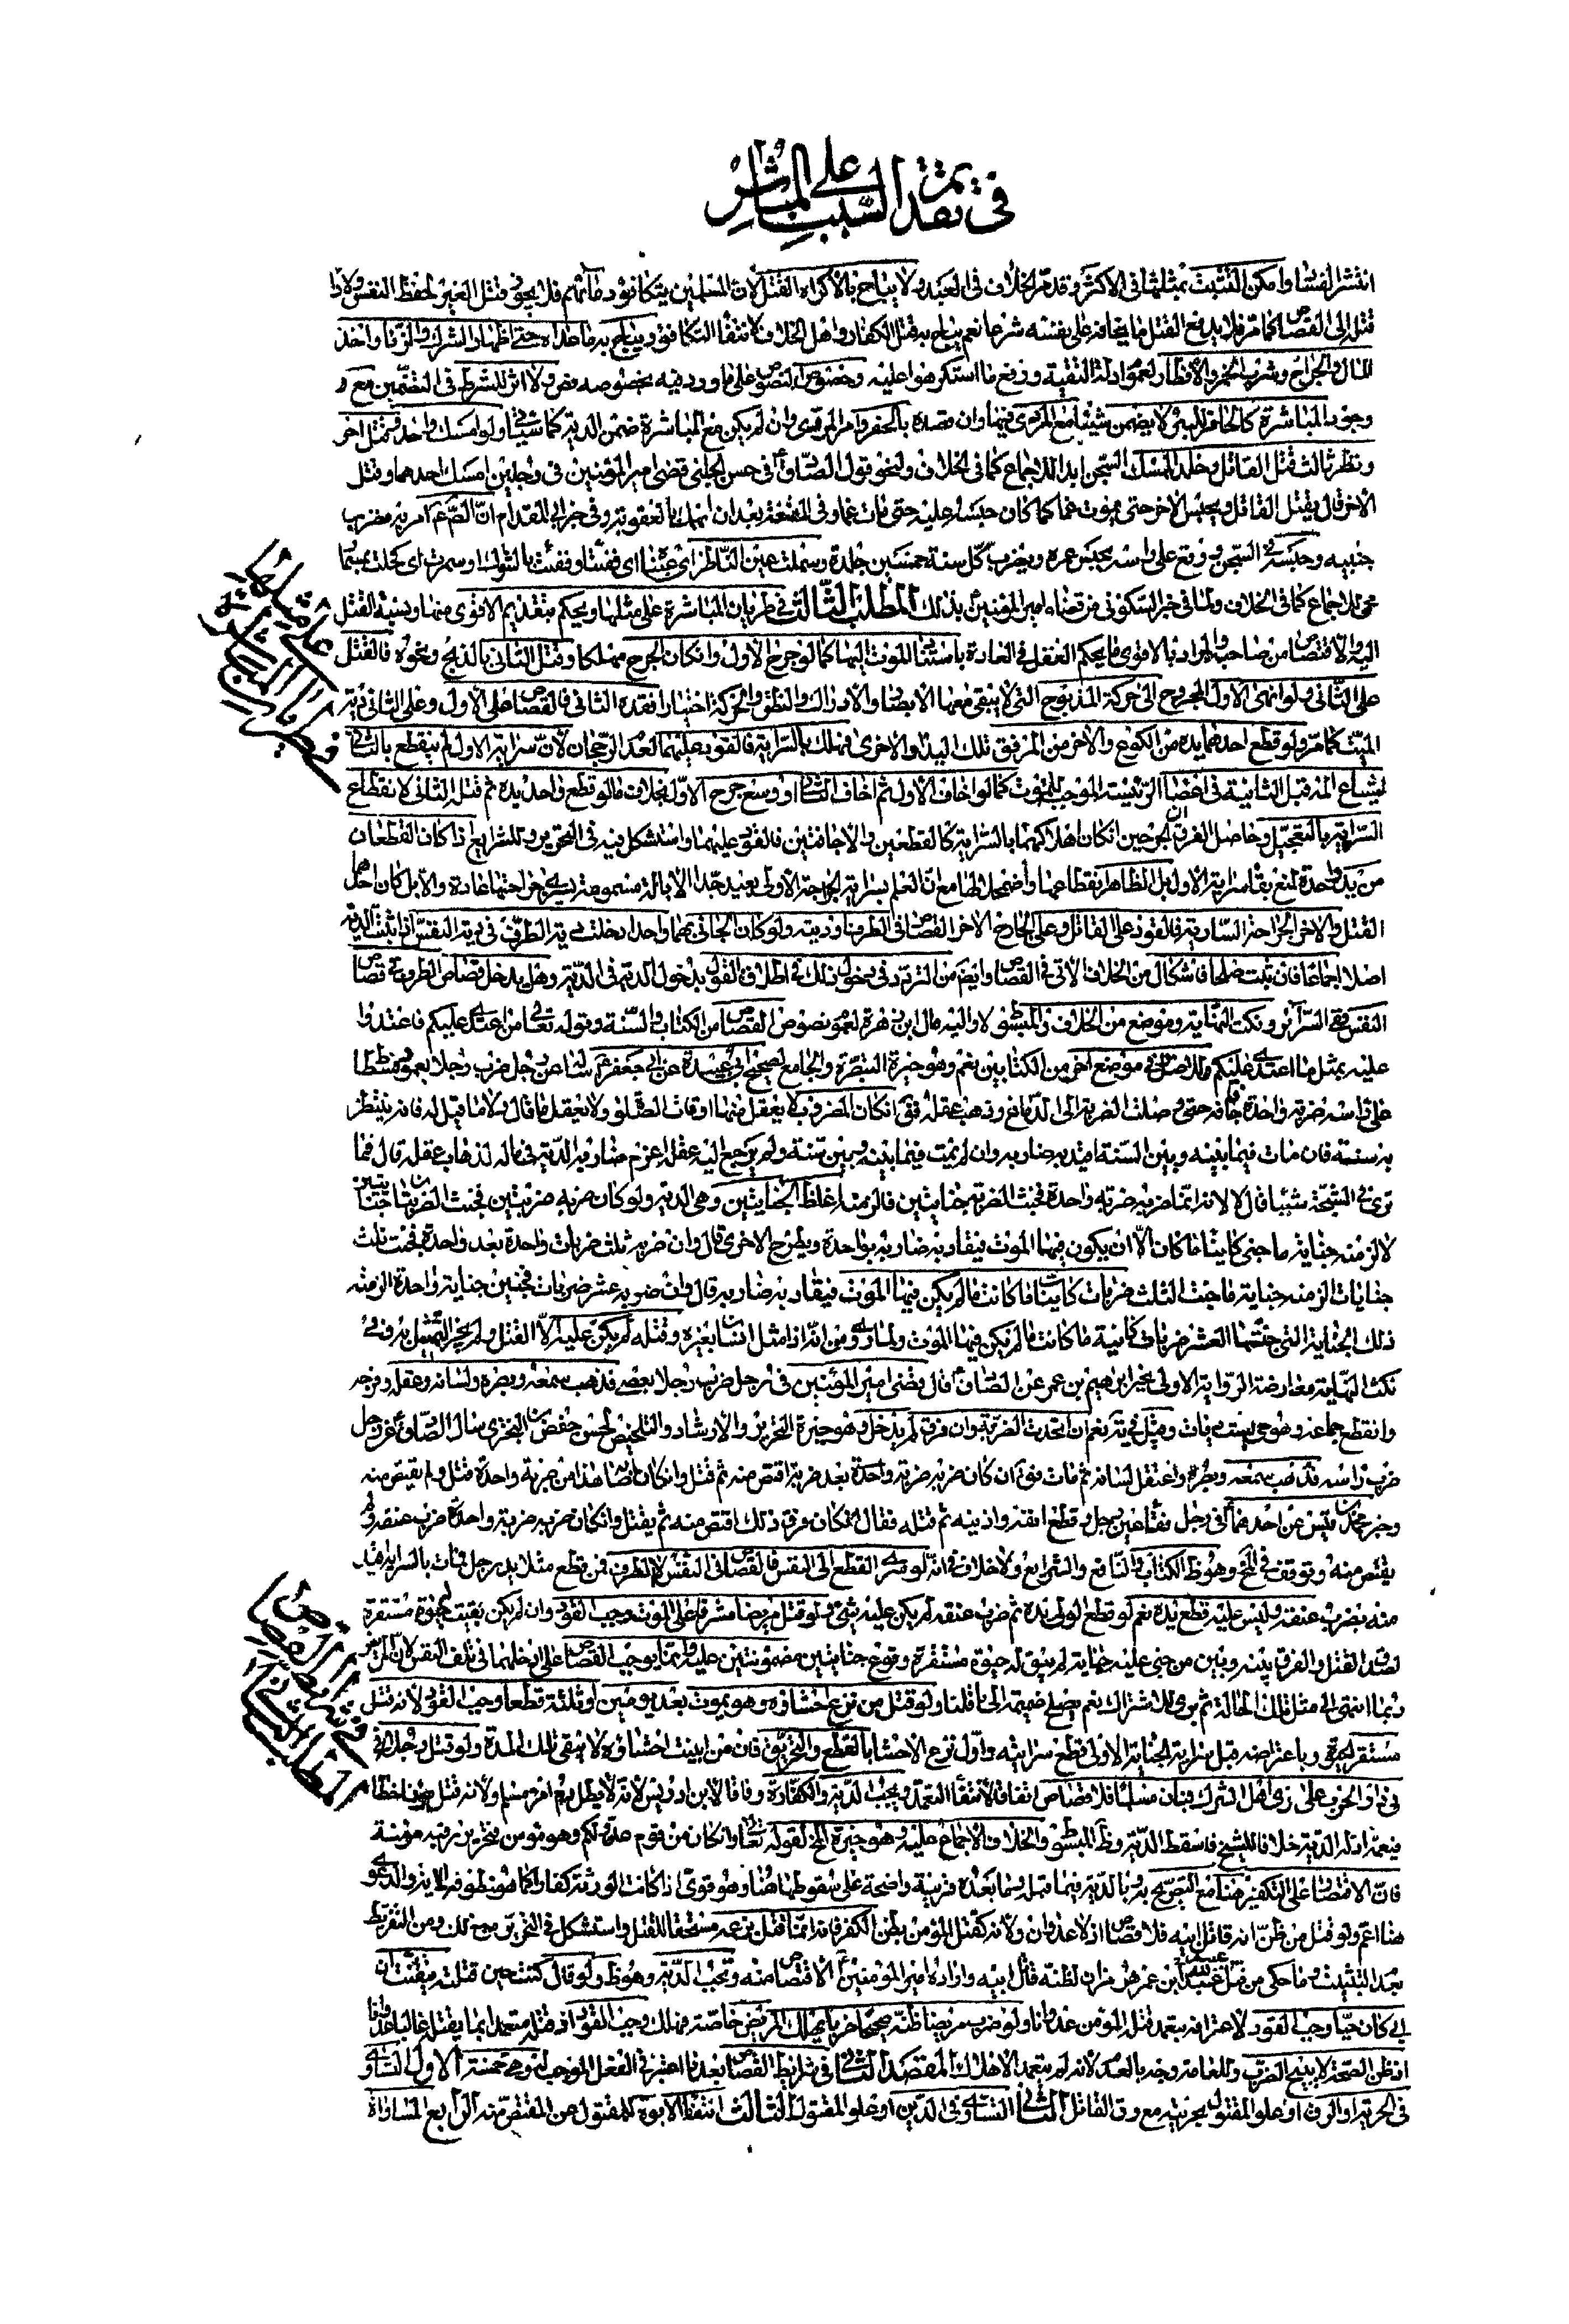 في تقديم السبب على المباشر
انتشر الفساد وامكن التثبت بمثلها في الاكثر وقد مر الخلاف في العبد ولا يباح بالاكراه القتل لان المسلمين يتكافؤ دماؤهم فلا يجوز قتل الغير لحفظ النفس ولاداء
قتله الى القصاص كما مر فلا يدفع القتل ما يخافه على نفسه شرعا نعم يباح به قتل الكفار واهل الخلاف لانتفاء التكافؤ ويباح به ما عداه حتى اظهار الشرك والزنا واخذ
المال والجراح وشرب الخمر والافطار لعموم ادلة التقية ورفع ما استكرهوا عليه وخصوص النصوص على ما ورد فيه بخصوصه نص ولا اثر للشرط في التضمين مع
وجود المباشرة كالحافر للبئر لا يضمن شيئا مع المردي فيها وان قصده بالحفر وامر المردي وان لم يكن مع المباشرة ضمن الدية كما سيأتي ولو امسك واحد وقتل اخر
ونظر ثالث قتل القاتل وخلد الممسك السجن ابدا للاجماع كما في الخلاف ولنحو قول الصادق ع في حسن الحلبي قضى امير المؤمنين في رجلين امسك احدهما وقتل
الاخر قال يقتل القاتل ويحبس الاخر حتى يموت غما كما كان حبسه عليه حتى مات غما وفي المقنعة بعد ان انهك بالعقوبة وفي خبر ابي المقدام ان الصادق ع امر به فضرب
جنبيه وحبسه في السجن ووقع على راسه يحبس عمره ويضرب كل سنة خمسين جلدة وسملت عين الناظر اي عيناه اي فقئتا وفقئت بالشوك او سمرت اي كحلت بمسمار
محمى للاجماع كما في الخلاف ولما في خبر السكوني من قضاء امير المؤمنين ع بذلك المطلب الثالث في طريان المباشرة على مثلها ويحكم بتقديم الاقوى منهما ونسبة القتل
اليه والاقتصاص من صاحبه والمراد بالاقوى ما يحكم العقل في العادة باستناد الموت اليها كما لو جرح الاول وان كان الجرح مهلكا وقتل الثاني بالذبح ونحوه فالقتل
على الثاني ولو انهى الاول المجروح الى حركة المذبوح التي لا يبقى معها الابصار والادراك والنطق والحركة اختيارا فقده الثاني فالقصاص على الاول وعلى الثاني دية
الميت كما مر ولو قطع احدهما يده من الكوع والاخر من المرفق تلك اليد او الاخرى فهلك بالسراية فالقود عليهما لعدم الرجحان لان سراية الاول لم ينقطع بالثاني
لشياع المه قبل الثانية في اعضائه الرئيسة الموجب للموت كما لو اخاف الاول ثم اخاف الثاني او وسع جرح الاول بخلاف ما لو قطع واحد يده ثم قتله الثاني لانقطاع
السراية بالتعجيل وحاصل الفرق ان الجرحين ان كان اهلاكهما بالسراية كالقطعين والاجافتين فالقود عليهما واستشكل فيه في التحرير وللشرايع اذا كان القطعان
من يد واحدة لمنع بقاء سراية الاول بل الظاهر انقطاعها واضمحلالها مع ان العلم بسراية الجراحة الاولى بعيد جدا الا بالة مسمومة يسري جراحتها عادة والا بل كان احدهما
القتل والاخر الجراحة السارية فالقود على القاتل وعلى الجارح الاخر القصاص في الطرف او ديته ولو كان الجاني بهما واحدا دخلت دية الطرف في دية النفس ان ثبتت الدية
اصلا اجماعا فان ثبتت صلحا فاشكال من الخلاف الاتي في القصاص وايضا من التردد في دخول ذلك في اطلاق القول بدخول الدية في الدية وهل يدخل قصاص الطرف في قصاص
النفس ففي السرائر ونكت النهاية وموضع من الخلاف والمبسوط لا واليه مال ابن زهرة لعموم نصوص القصاص من الكتاب والسنة وقوله تعالى من اعتدى عليكم فاعتدوا
عليه بمثل ما اعتدى عليكم والاصل وفي موضع اخر من الكتابين نعم وهو خيرة التبصرة والجامع لصحيح ابي عبيدة عن ابي جعفر ع ساله عن رجل ضرب رجلا بعمود فسطاط
على راسه ضربة واحدة جافة حتى وصلت الضربة الى الدماغ وذهب عقله فق ان كان المضروب لا يعقل منها اوقات الصلوة ولا يعقل ما قال ولا ما قيل له فانه ينتظر
به سنة فان مات فيما بينه وبين السنة اقيد به ضاربه وان لم يمت فيما بينه وبين سنة ولم يرجع اليه عقله اغرم ضاربه الدية في ماله لذهاب عقله قال فما
ترى في الشجة شيئا قال لا لانه انما ضربه ضربة واحدة فجنت الضربة جنايتين فالزمته اغلظ الجنايتين وهي الدية ولو كان ضربه ضربتين فجنت الضربتان جنايتين
لالزمته جناية ما جنى كائنا ما كان الا ان يكون فيهما الموت فيقاد به ضاربه بواحدة ويطرح الاخرى قال وان ضربه ثلث ضربات واحدة بعد واحدة فجنت ثلث
جنايات الزمته جناية ما جنت الثلث ضربات كائنات ما كانت ما لم يكن فيها الموت فيقاد به ضاربه قال وان ضربه عشر ضربات فجنين جناية واحدة الزمته
ذلك الجناية التي جنتها العشر ضربات كائنة ما كانت ما لم يكن فيها الموت ولما روي من انه اذا مثل انسان بغيره وقتله لم يكن عليه الا القتل ولم يجز التمثيل به وفي
نكت النهاية معارضة الرواية الاولى بخبر ابرهيم بن عمر عن الصادق ع قال قضى امير المؤمنين في رجل ضرب رجلا بعصى فذهب سمعه وبصره ولسانه وعقله وفرجه
وانقطع جماعه وهو حي بست ديات وقيل في ية نعم ان اتحدت الضربة وان فرق لم يدخل وهو خيرة التحرير والارشاد والتلخيص لحسن حفص بن البختري سال الصادق ع عن رجل
ضرب راسه فذهب سمعه وبصره واعتقل لسانه ثم مات فق ان كان ضربه ضربة واحدة بعد ضربة اقتص منه ثم قتل وان كان اصابه هذا من ضربة واحدة قتل ولم يقتص منه
وخبر محمد بن قيس عن احدهما ع في رجل فقأ عين رجل وقطع انفه واذنيه ثم قتله فقال ان كان فرق ذلك اقتص منه ثم يقتل وان كان ضربه ضربة واحدة ضرب عنقه ولم
يقتص منه وتوقف في المخ وهو ظ الكتاب والنافع والشرايع ولا خلاف في انه لو سرى القطع الى النفس فالقصاص في النفس لا الطرف فمن قطع مثلا يد رجل فمات بالسراية اقيد
منه بضرب عنقه وليس عليه قطع يده نعم لو قطع الولي يده ثم ضرب عنقه لم يكن عليه شيء ولو قتل مريضا مشرفا على الموت وجب القود وان لم يكن بقيت له حيوة مستقرة
لصدق القتل والفرق بينه وبين من جنى عليه جناية لم يبق له حيوة مستقرة وقوع جنايتين مضمونتين عليه وانما يوجب القصاص على ادخلهما في تلف النفس لان المرض
ربما انتهى الى مثل تلك الحالة ثم برئ للاشتراك نعم يصلح ضميمة الى ما قلنا ولو قتل من نزع احشاؤه وهو يموت بعد يومين او ثلثة قطعا وجب القود لانه قتل
مستقر الحيوة وباعتراضه قبل سراية الجناية الاولى قطع سرايته واول نزع الاحشاء بالقطع والخرق فان من ابينت احشاؤه لا يبقى تلك المدة ولو قتل رجلا في
دار الحرب على زي اهل الشرك فبان مسلما فلا قصاص اتفاقا لانتفاء التعمد ويجب الدية والكفارة وفاقا لابن ادريس لانه لا يطل دم امرء مسلم ولانه قتل مؤمنا خطأ
فيعمه ادلة الدية خلافا للشيخ فاسقط الدية وظ المبسوط والخلاف الاجماع عليه وهو خيرة المخ لقوله تعالى وان كان من قوم عدو لكم وهو مؤمن فتحرير رقبة مؤمنة
فان الاقتصار على التكفير هنا مع التصريح به وبالدية فيما قبله وما بعده قرينة واضحة على سقوطها هنا وهو قوي اذا كانت الورثة كفارا كما هو منطوق الاية والدعوى
هنا اعم ولو قتل من ظن انه قاتل ابيه فلا قصاص اذ لا عدوان ولانه كقتل المؤمن بظن الكفر فانه انما قتل بزعمه مستحقا للقتل واستشكل في التحرير من ذلك ومن التفريط
بعدم التثبت وما حكي من قتل عبيد الله بن عمر هرمزان لظنه قاتل ابيه واراد امير المؤمنين ع الاقتصاص منه وتجب الدية وهو ظ ولو قال كنت حين قتلته تيقنت ان
ابي كان حيا وجب القود لاعترافه بتعمد قتل المؤمن عدوانا ولو ضرب مريضا ظنه صحيحا ضربا يهلك المريض خاصة فهلك وجب القود اذ قتله متعمدا بما يقتل غالبا عدوانا
اذ ظن الصحة لا يبيح الضرب وللعامة وجه بالعدم لانه لم يتعمد الاهلاك المقصد الثاني في شرايط القصاص بعد ما اعتبر في الفعل الموجب له وهي خمسة الاول التساوي
في الحرية او الرق او علو المقتول بحريته مع رق القاتل الثاني التساوي في الدين او علو المقتول الثالث انتفاء الابوة للمقتول عن المقتص منه الرابع المساواة
في طريان المباشرة على مثلها
المطلب الثاني في شرايط القصاص